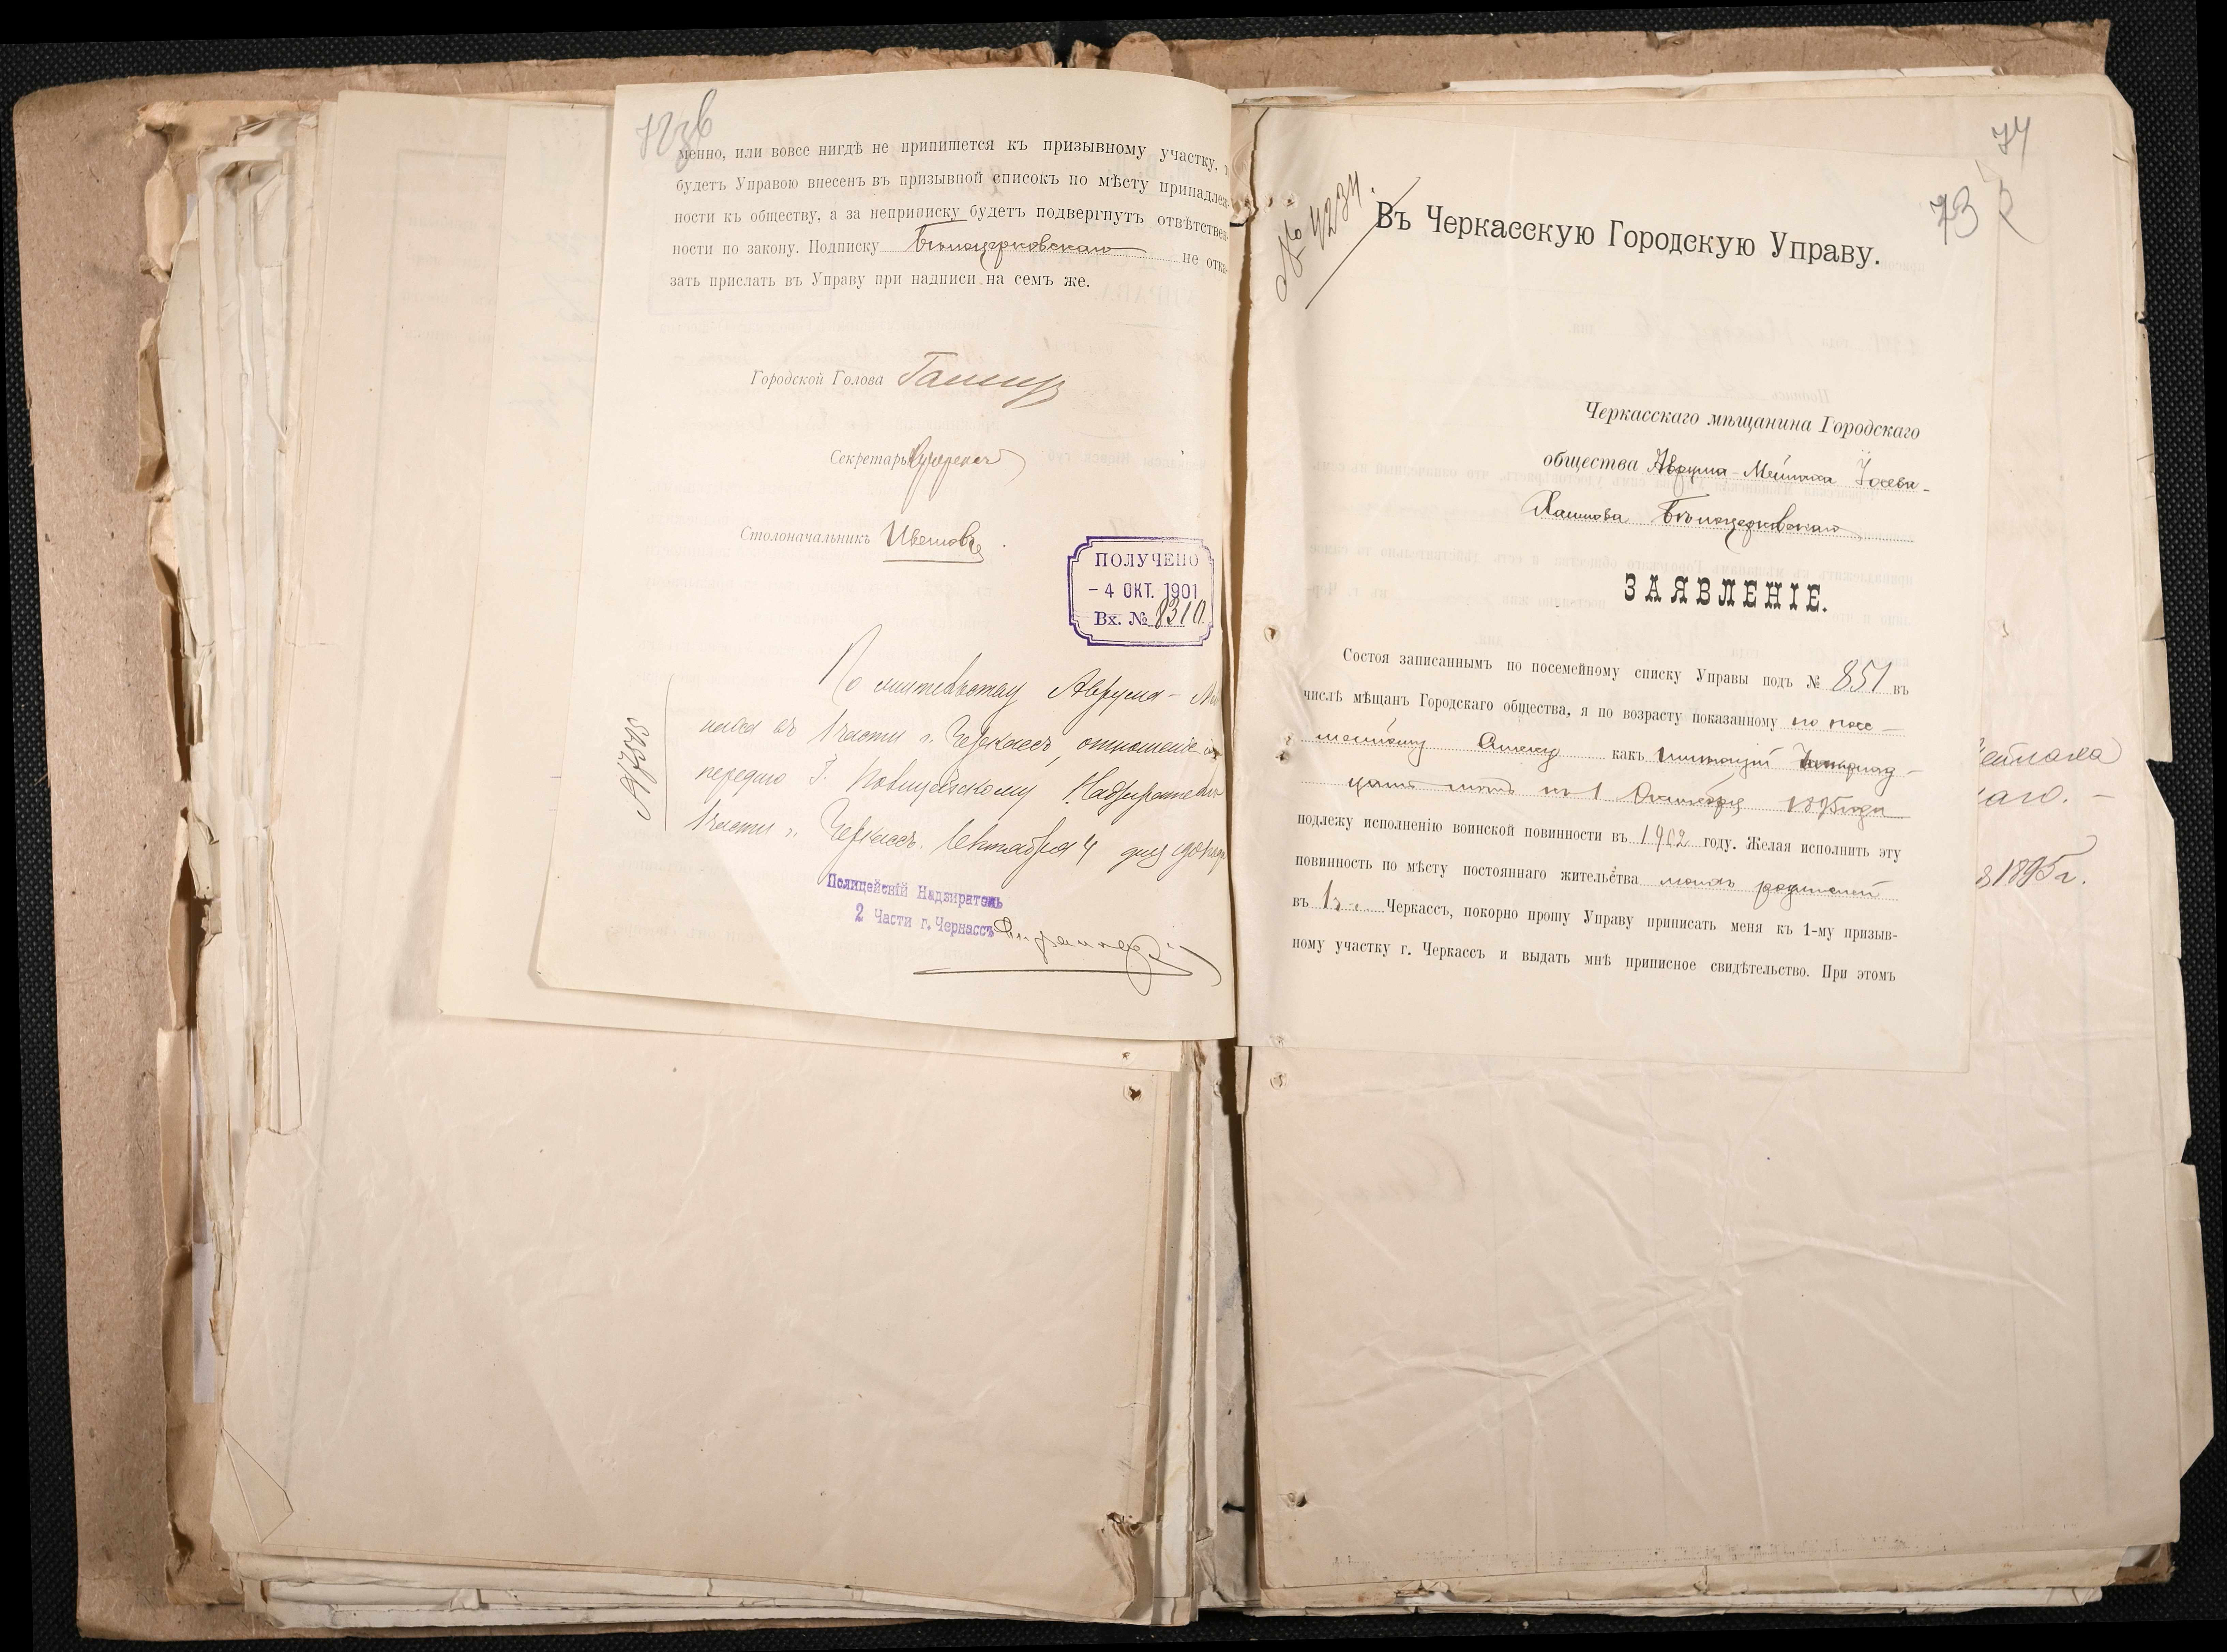 менно, или вовсе нигдѣ не припишется къ призывному участку,
будетъ Управою внесенъ въ призывной списокъ по мѣсту принадлеж-
ности къ обществу, а за неприписку будетъ подвергнутъ отвѣтствен-
ности по закону. Подписку Бѣлоцерковскаго не отка-
зать прислать въ Управу при надписи на семъ же.
Городской Голова
Секретарь
Столоначальникъ
ПОЛУЧЕНО
- 4 ОКТ. 1901
Вх. № 8310.
По жительству Аврума-
въ 1 части г. Черкассъ, отношеніе
передаю Г. Полицейскому Надзирателю
1 части г. Черкассъ. Сентября 4 дня 1901 года
Полицейскій Надзиратель
2 Части г. Черкассъ
74
73
№ 4234.
Въ Черкасскую Городскую Управу.
Черкасскаго мѣщанина Городскаго
общества Аврума-Мейлаха Іосева-
Хаимова Бѣлоцерковскаго
ЗАЯВЛЕНІЕ.
Состоя записаннымъ по посемейному списку Управы подъ № 851 въ
числѣ мѣщанъ Городскаго общества, я по возрасту показанному по посе-
мейному списку какъ имѣющій
цать лѣтъ къ 1 Октября 1895 года
подлежу исполненію воинской повинности въ 1902 году. Желая исполнить эту
повинность по мѣсту постояннаго жительства моихъ родителей
въ Черкассъ, покорно прошу Управу приписать меня къ 1-му призыв-
ному участку г. Черкассъ и выдать мнѣ приписное свидѣтельство. При этомъ
ейлаха
аго. -
1895 г.